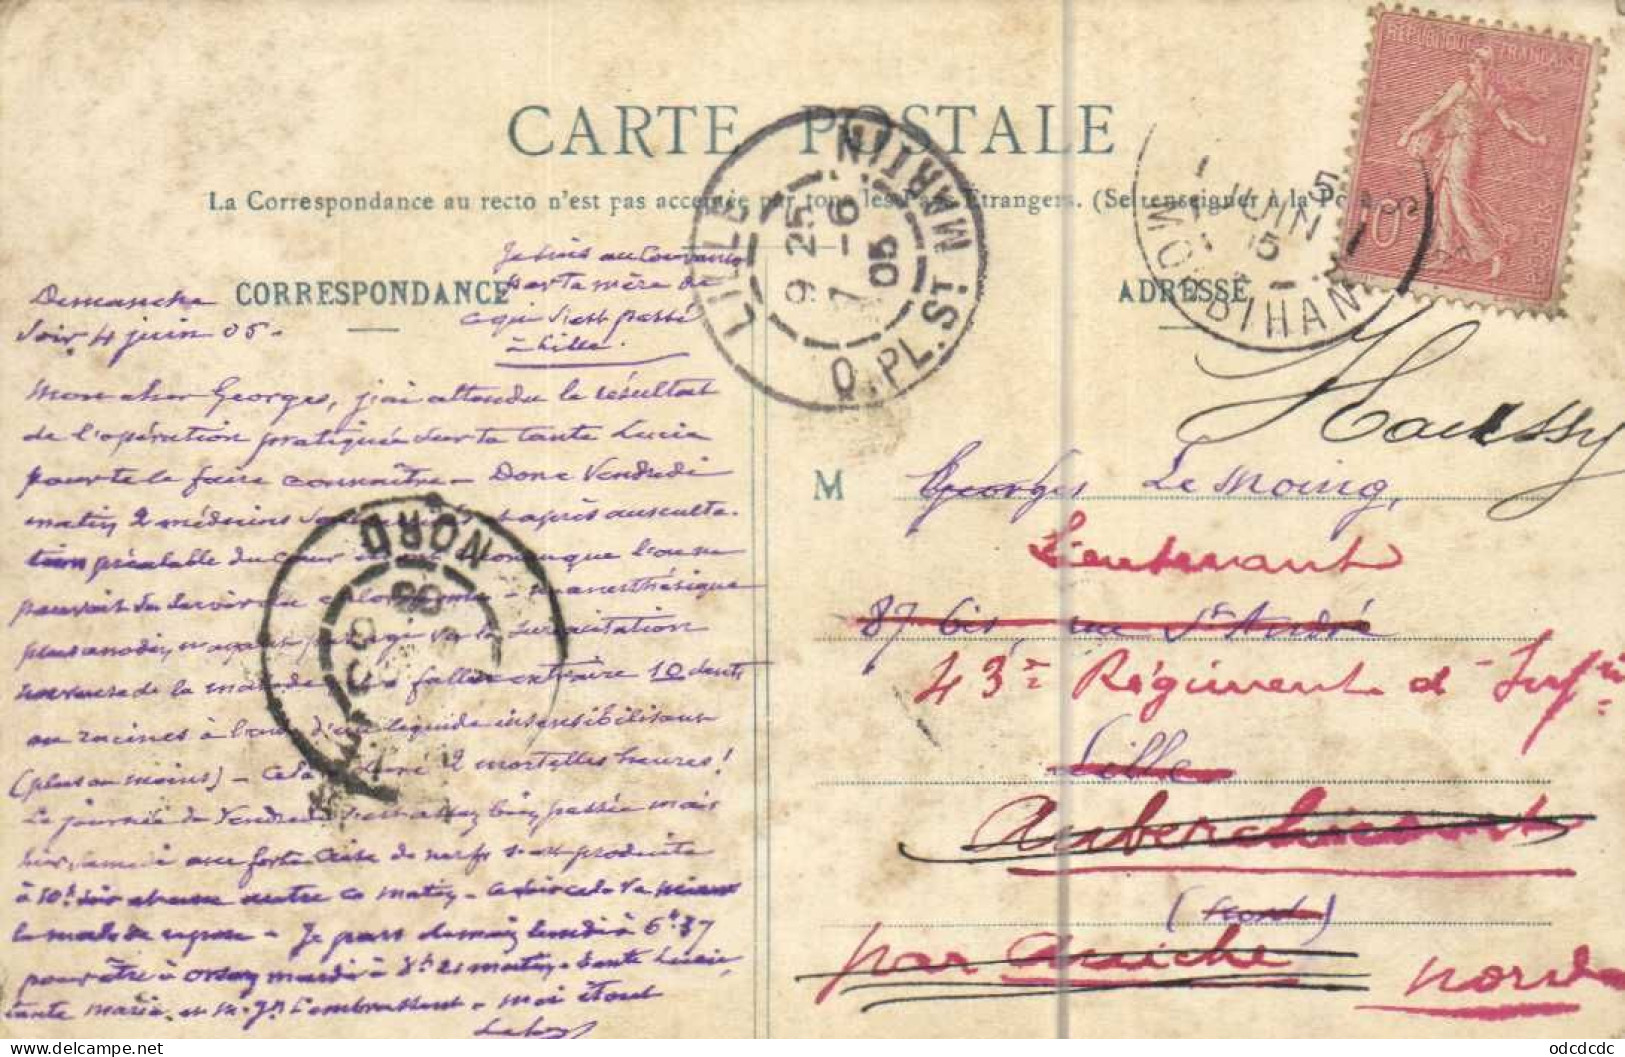 RÉPUBLIQUE FRANÇAISE
POSTES
10
CARTE POSTALE
La Correspondance au recto n'est pas acceptée par tous les Pays Étrangers. (Se renseigner à la Poste)
LILLE
PL. ST MARTIN
9 25
7 - 6
05
JUIN
05
MORBIHAN
CORRESPONDANCE
ADRESSE
Je suis au Courant
par ta mère de
ce qui s'est passé
à Lille.
Dimanche
Soir 4 juin 05.
Mon cher Georges, j'ai attendu le résultat
de l'opération pratiquée sur ta tante Lucie
pour te le faire connaître - Donc Vendredi
matin 2 médecins après ausculta-
tion préalable du cœur que l'on ne
pouvait se servir du chloroforme - anesthésique
plus anodin, n'ayant
de la malade il a fallu extraire 10 dents
ou racines à l'aide d'un liquide insensibilisant
(plus ou moins) - cela a duré 2 mortelles heures!
La journée de Vendredi s'est assez bien passée mais
hier Samedi une forte crise de nerfs s'est produite
à 10h. soir et une autre ce matin - ce soir cela va mieux
la malade repose - Je pars demain lundi à 6h 37
pour être à mardi à 8h matin - tante Lucie,
tante Maria et t'embrassent - moi itou
NORD
M
Haussy
Georges Le Moing,
Lieutenant
87 bis, rue St André
43e Régiment d'Infrie
Lille
Auberchicourt
(Nord)
par Aniche
Nord
odcdcdc